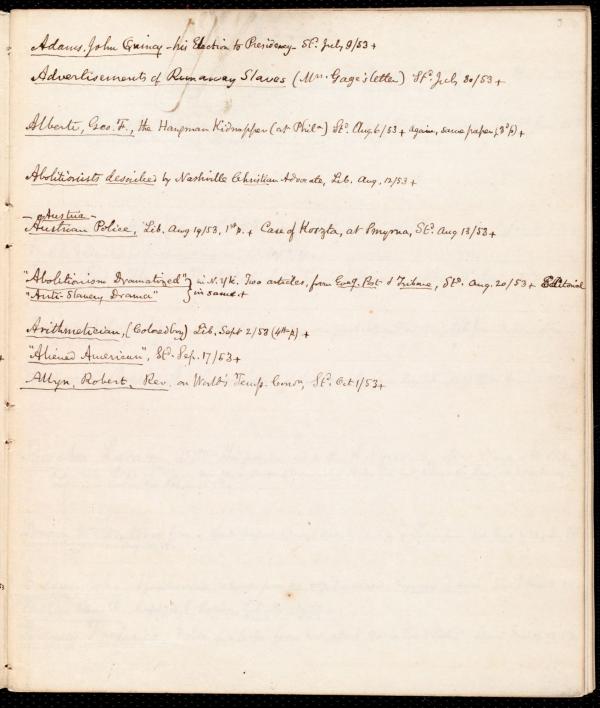 Adams, John Quincy - his Election to Presidency - Sd. July 9/53 +
Advertisements of Runaway Slaves (Mrs. Gage's letter) Sd. July 30/53 +
Alberti, Geo. F., the Hangman Kidnapper (at Phila) Sd. Aug 6/53 + again, same paper, (3d p) +
Abolitionists described by Nashville Christian Advocate, Lib. Aug. 12/53 +
- Austria -
Austrian Police, Lib. Aug 19/53, 1st p. + Case of Koszta, at Smyrna, Sd. Aug 13/53 +
"Abolitionism Dramatized" } in N. Yk. Two articles, from Eveng. Post & Tribune, Sd. Aug. 20/53 + Editorial
"Anti-Slavery Drama" } in same. +
Arithmetician, (Colored boy) Lib. Sept 2/53 (4th p) +
"Aliened American", Sd. Sep. 17/53 +
Allyn, Robert, Rev. on World's Temp. Convn, Sd. Oct 1/53 +